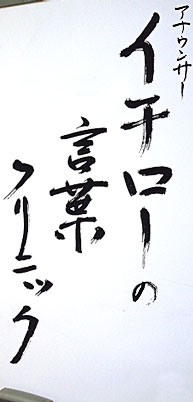 アナウンサー
イチローの
言葉
クリニック